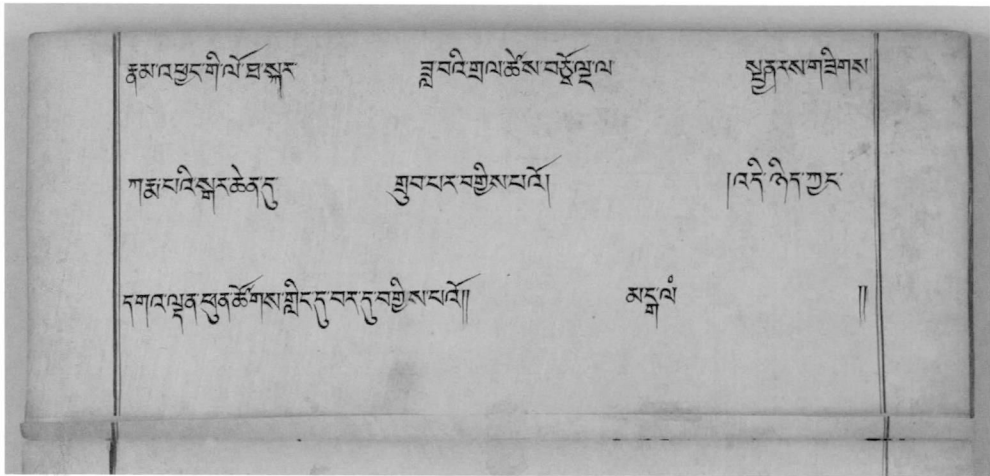 རྣམ་འཕྱང་གི་ལོ་ཐ་སྐར་ ཟླ་བའི་གྲལ་ཚེས་བཅོ་ལྔ་ལ་ སྤྱནརས་གཟིགས་
ཀརྨ་པའི་སྒར་ཆེན་དུ་ གྲུབ་པར་བགྱིས་པའོ། །འདི་ཉིད་ཀྱང་
དགའ་ལྡན་ཕུན་ཚོགས་གླིང་དུ་བར་དུ་བགྱིས་པའོ།། མངྒ་ལཾ །།